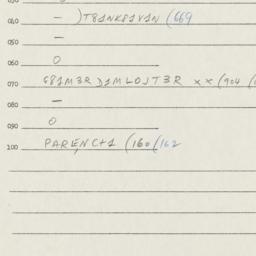 040 — )T81NK81V1N (669
050 —
060 O
070 G81M3R D1MLOJT3R x x (904
080 —
090 O
100 PARENCH1 (160/162